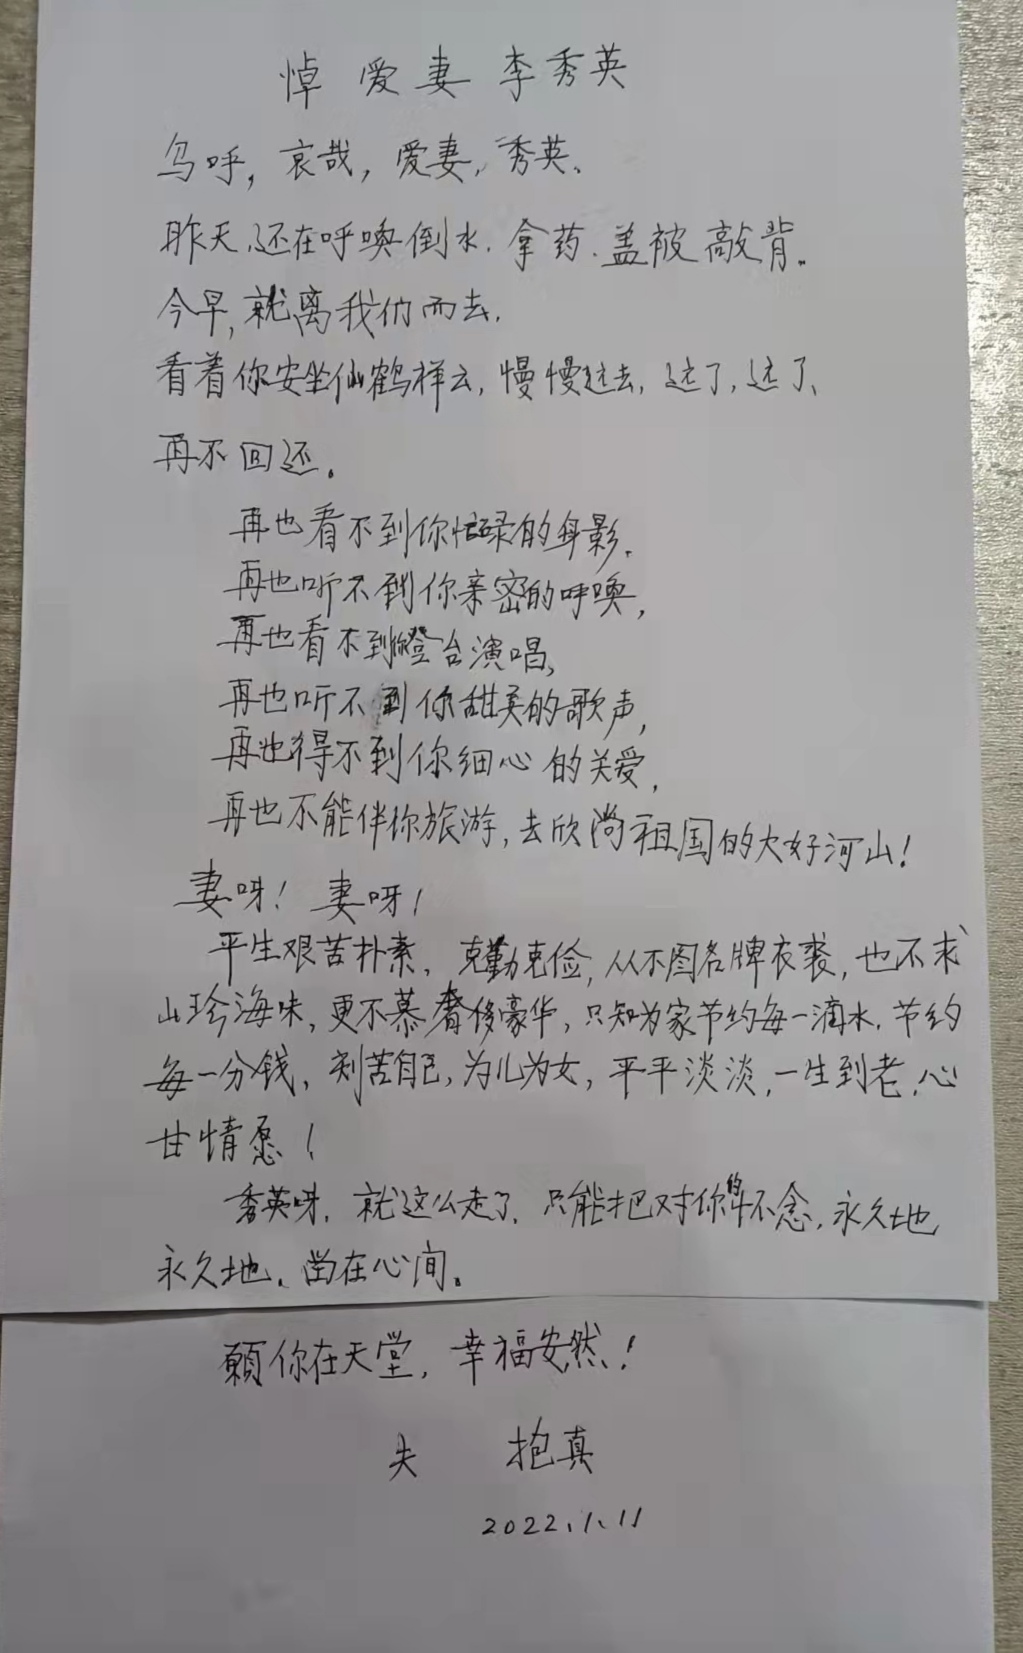 悼爱妻李秀英
乌呼，哀哉，爱妻，秀英、
昨天、还在呼唤倒水、拿药、盖被敲背。
今早，就离我们而去，
看着你安坐仙鹤祥云，慢慢远去，远了，远了、
再不回还。
再也看不到你忙碌的身影，
再也听不到你亲密的呼唤，
再也看不到你登台演唱，
再也听不到你甜美的歌声，
再也得不到你细心的关爱，
再也不能伴你旅游，去欣尚祖国的大好河山！
妻呀！妻呀！
平生艰苦朴素，克勤克俭，从不图名牌衣裘，也不求
山珍海味，更不慕奢侈豪华，只知为家节约每一滴水，节约
每一分钱，刻苦自己，为儿为女，平平淡淡，一生到老，心
甘情愿！
秀英呀，就这么走了，只能把对你的怀念，永久地
永久地，留在心间。
願你在天堂，幸福安然！
夫 抱真
2022.1.11